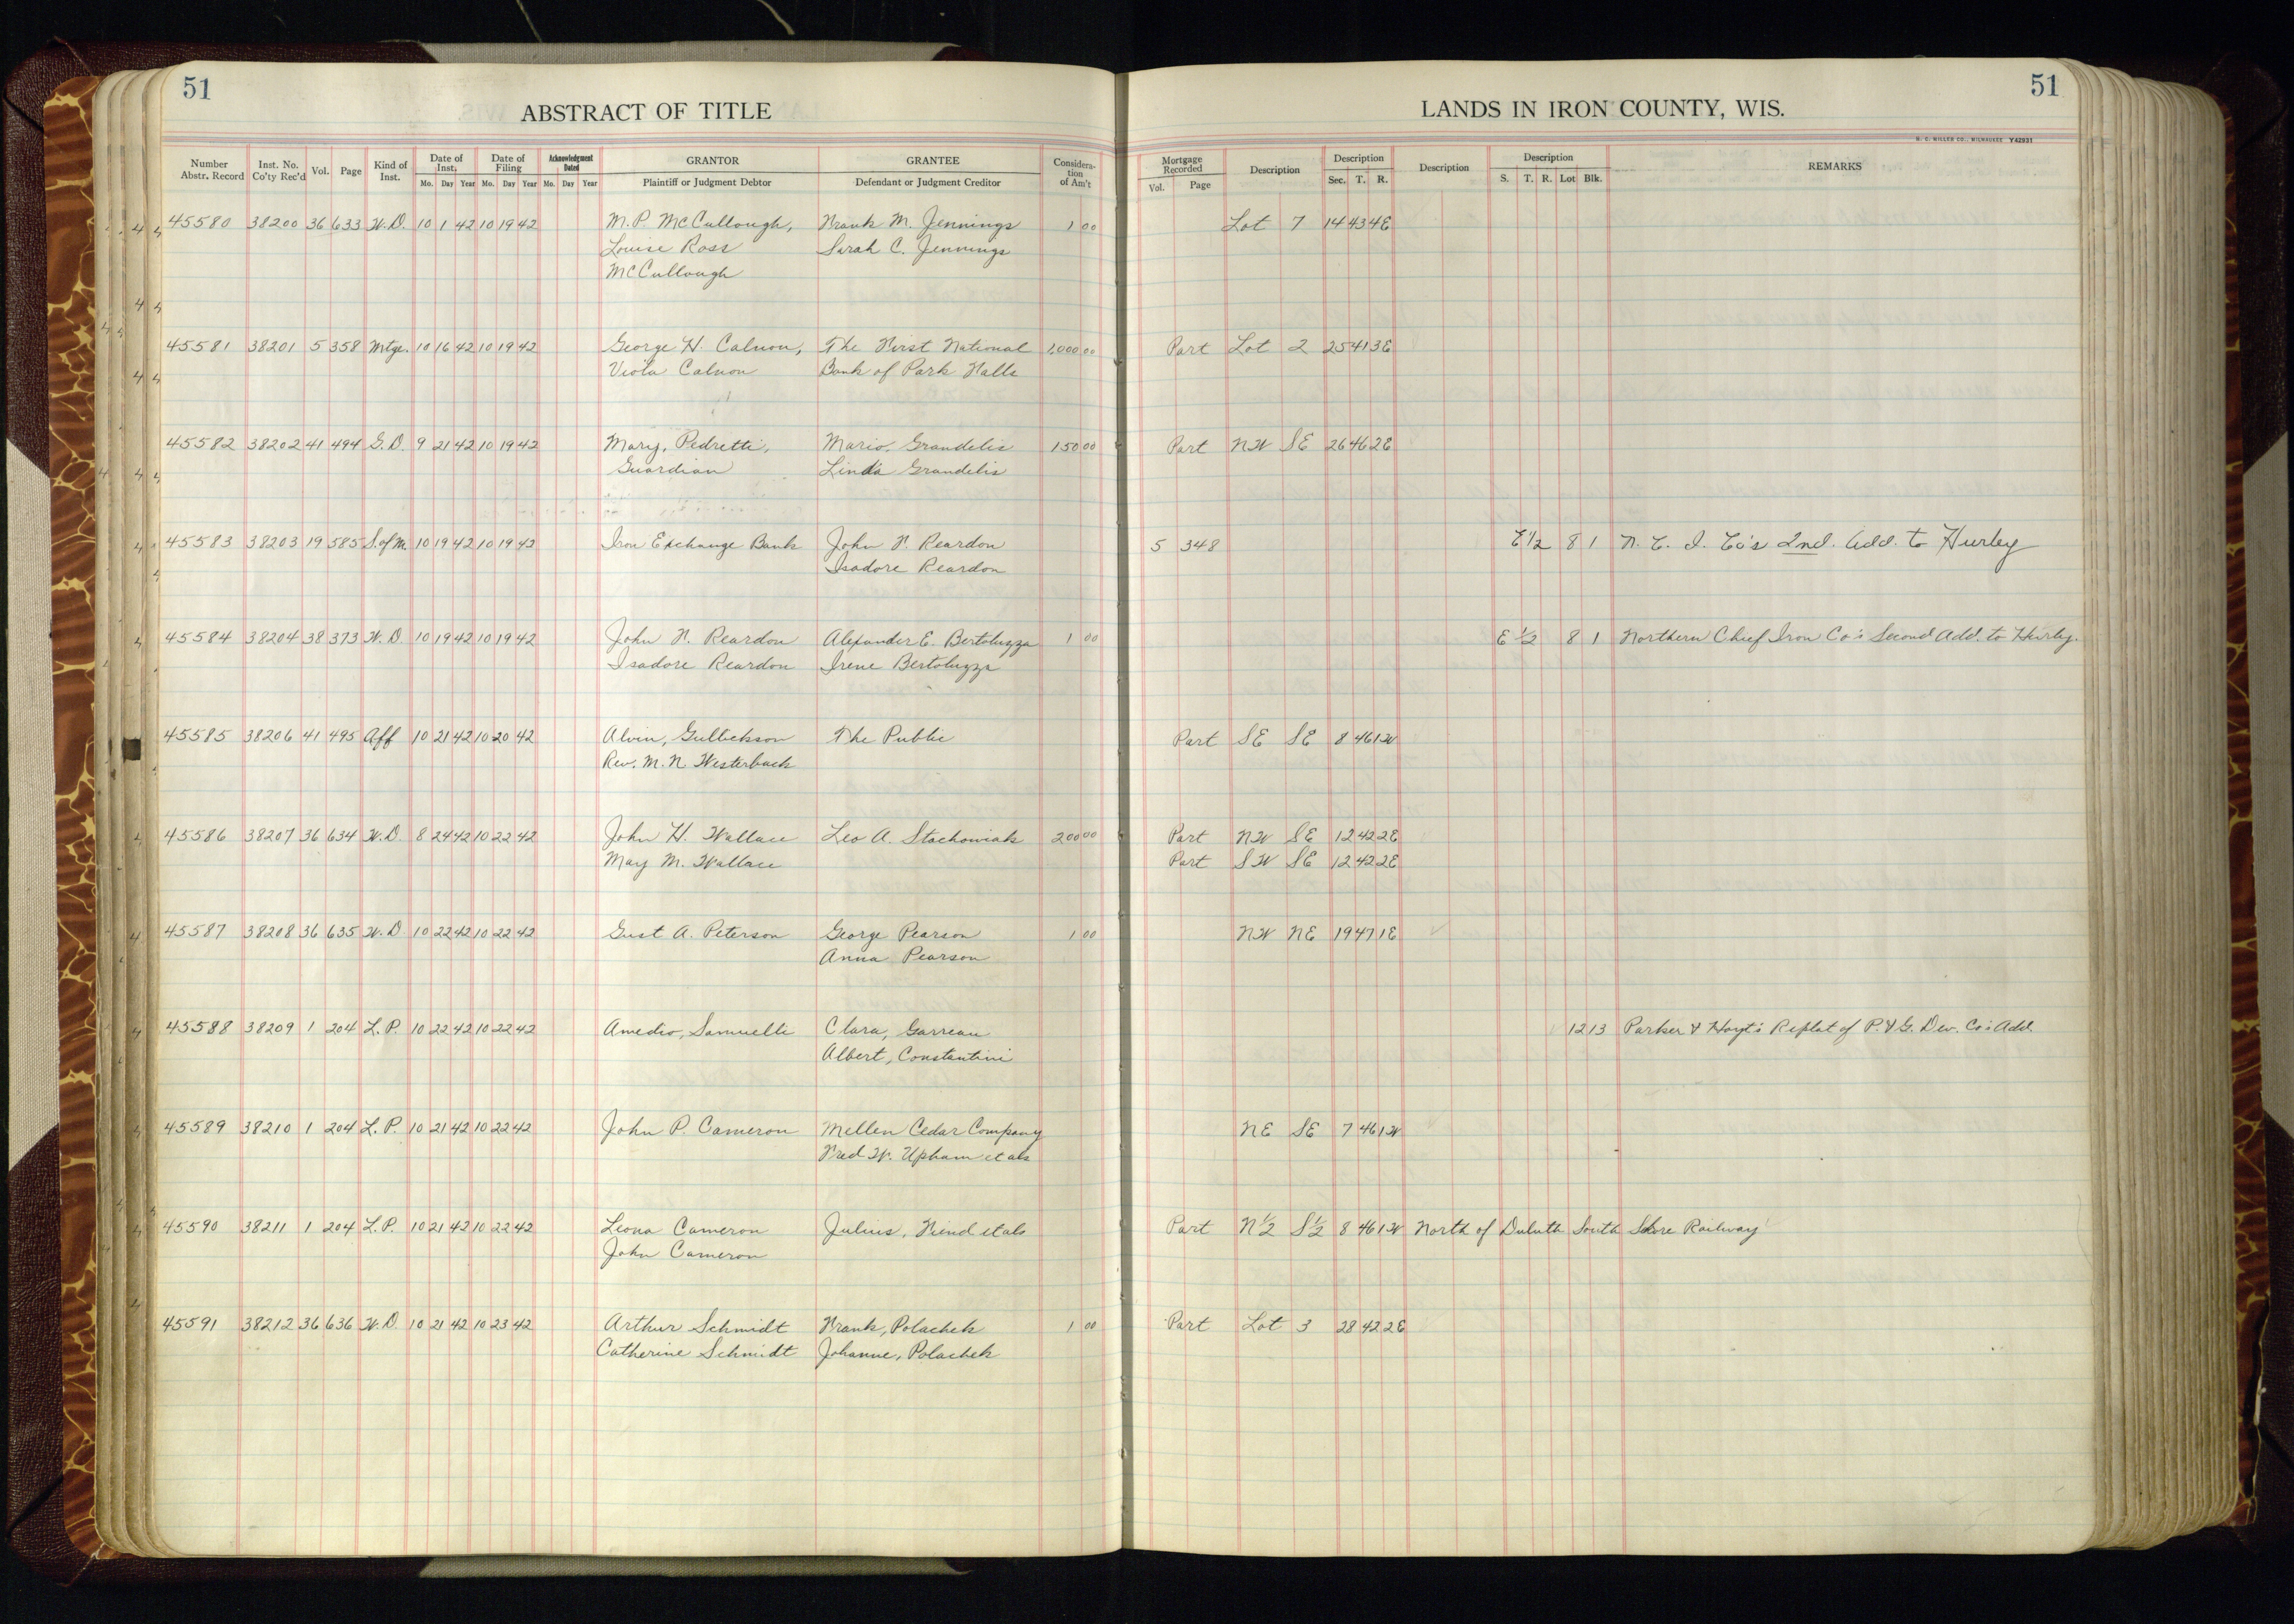 51
51
ABSTRACT OF TITLE
LANDS IN IRON COUNTY, WIS.
H. C. MILLER CO., MILWAUKEE Y42931
Number Abstr. Record Inst. No. Co'ty Rec'd Vol. Page Kind of Inst. Date of Inst. Mo. Day Year Date of Filing Mo. Day Year Acknowledgment Dated Mo. Day Year GRANTOR Plaintiff or Judgment Debtor GRANTEE Defendant or Judgment Creditor Considera-tion of Am't Mortgage Recorded Vol. Page Description Description Sec. T. R. Description Description S. T. R. Lot Blk. REMARKS
45580 38200 36 633 W.D. 10 1 42 10 19 42 M.P. McCullough, Frank M. Jennings 1 00 Lot 7 14 43 4E
Louise Ross Sarah C. Jennings
McCullough
45581 38201 5 358 Mtge. 10 16 42 10 19 42 George H. Calnon, The First National 1,000 00 Part Lot 2 25 41 3E
Viola Calnon Bank of Park Falls
45582 38202 41 494 G.D. 9 21 42 10 19 42 Mary, Pedretti, Mario, Grandelis 150 00 Part NW SE 26 46 2E
Guardian Linda Grandelis
45583 38203 19 585 S. of M. 10 19 42 10 19 42 Iron Exchange Bank John F. Reardon 5 348 E 1/2 8 1 N. C. I. Co's 2nd. Add. to Hurley
Isadore Reardon
45584 38204 38 373 W.D. 10 19 42 10 19 42 John F. Reardon Alexander E. Bertoluzza 1 00 E 1/2 8 1 Northern Chief Iron Co's Second Add. to Hurley.
Isadore Reardon Irene Bertoluzza
45585 38206 41 495 Aff 10 21 42 10 20 42 Alvin, Gullickson The Public Part SE SE 8 46 1W
Rev. M. N. Westerback
45586 38207 36 634 W.D. 8 24 42 10 22 42 John H. Wallace Leo A. Stachowiak 200 00 Part NW SE 12 42 2E
May M. Wallace Part SW SE 12 42 2E
45587 38208 36 635 W.D 10 22 42 10 22 42 Gust A. Peterson George Pearson 1 00 NW NE 19 47 1E
Anna Pearson
45588 38209 1 204 L.P. 10 22 42 10 22 42 Amedio, Samuelli Clara, Garreau 12 13 Parker & Hoyt's Replat of P. & G. Dev. Co's Add.
Albert, Constantini
45589 38210 1 204 L.P. 10 21 42 10 22 42 John P. Cameron Mellen Cedar Company NE SE 7 46 1W
Fred W. Upham et als
45590 38211 1 204 L.P. 10 21 42 10 22 42 Leona Cameron Julius, Fiend et als Part N 1/2 S 1/2 8 46 1W North of Duluth South Shore Railway
John Cameron
45591 38212 36 636 W.D. 10 21 42 10 23 42 Arthur Schmidt Frank, Polachek 1 00 Part Lot 3 28 42 2E
Catherine Schmidt Johanne, Polachek